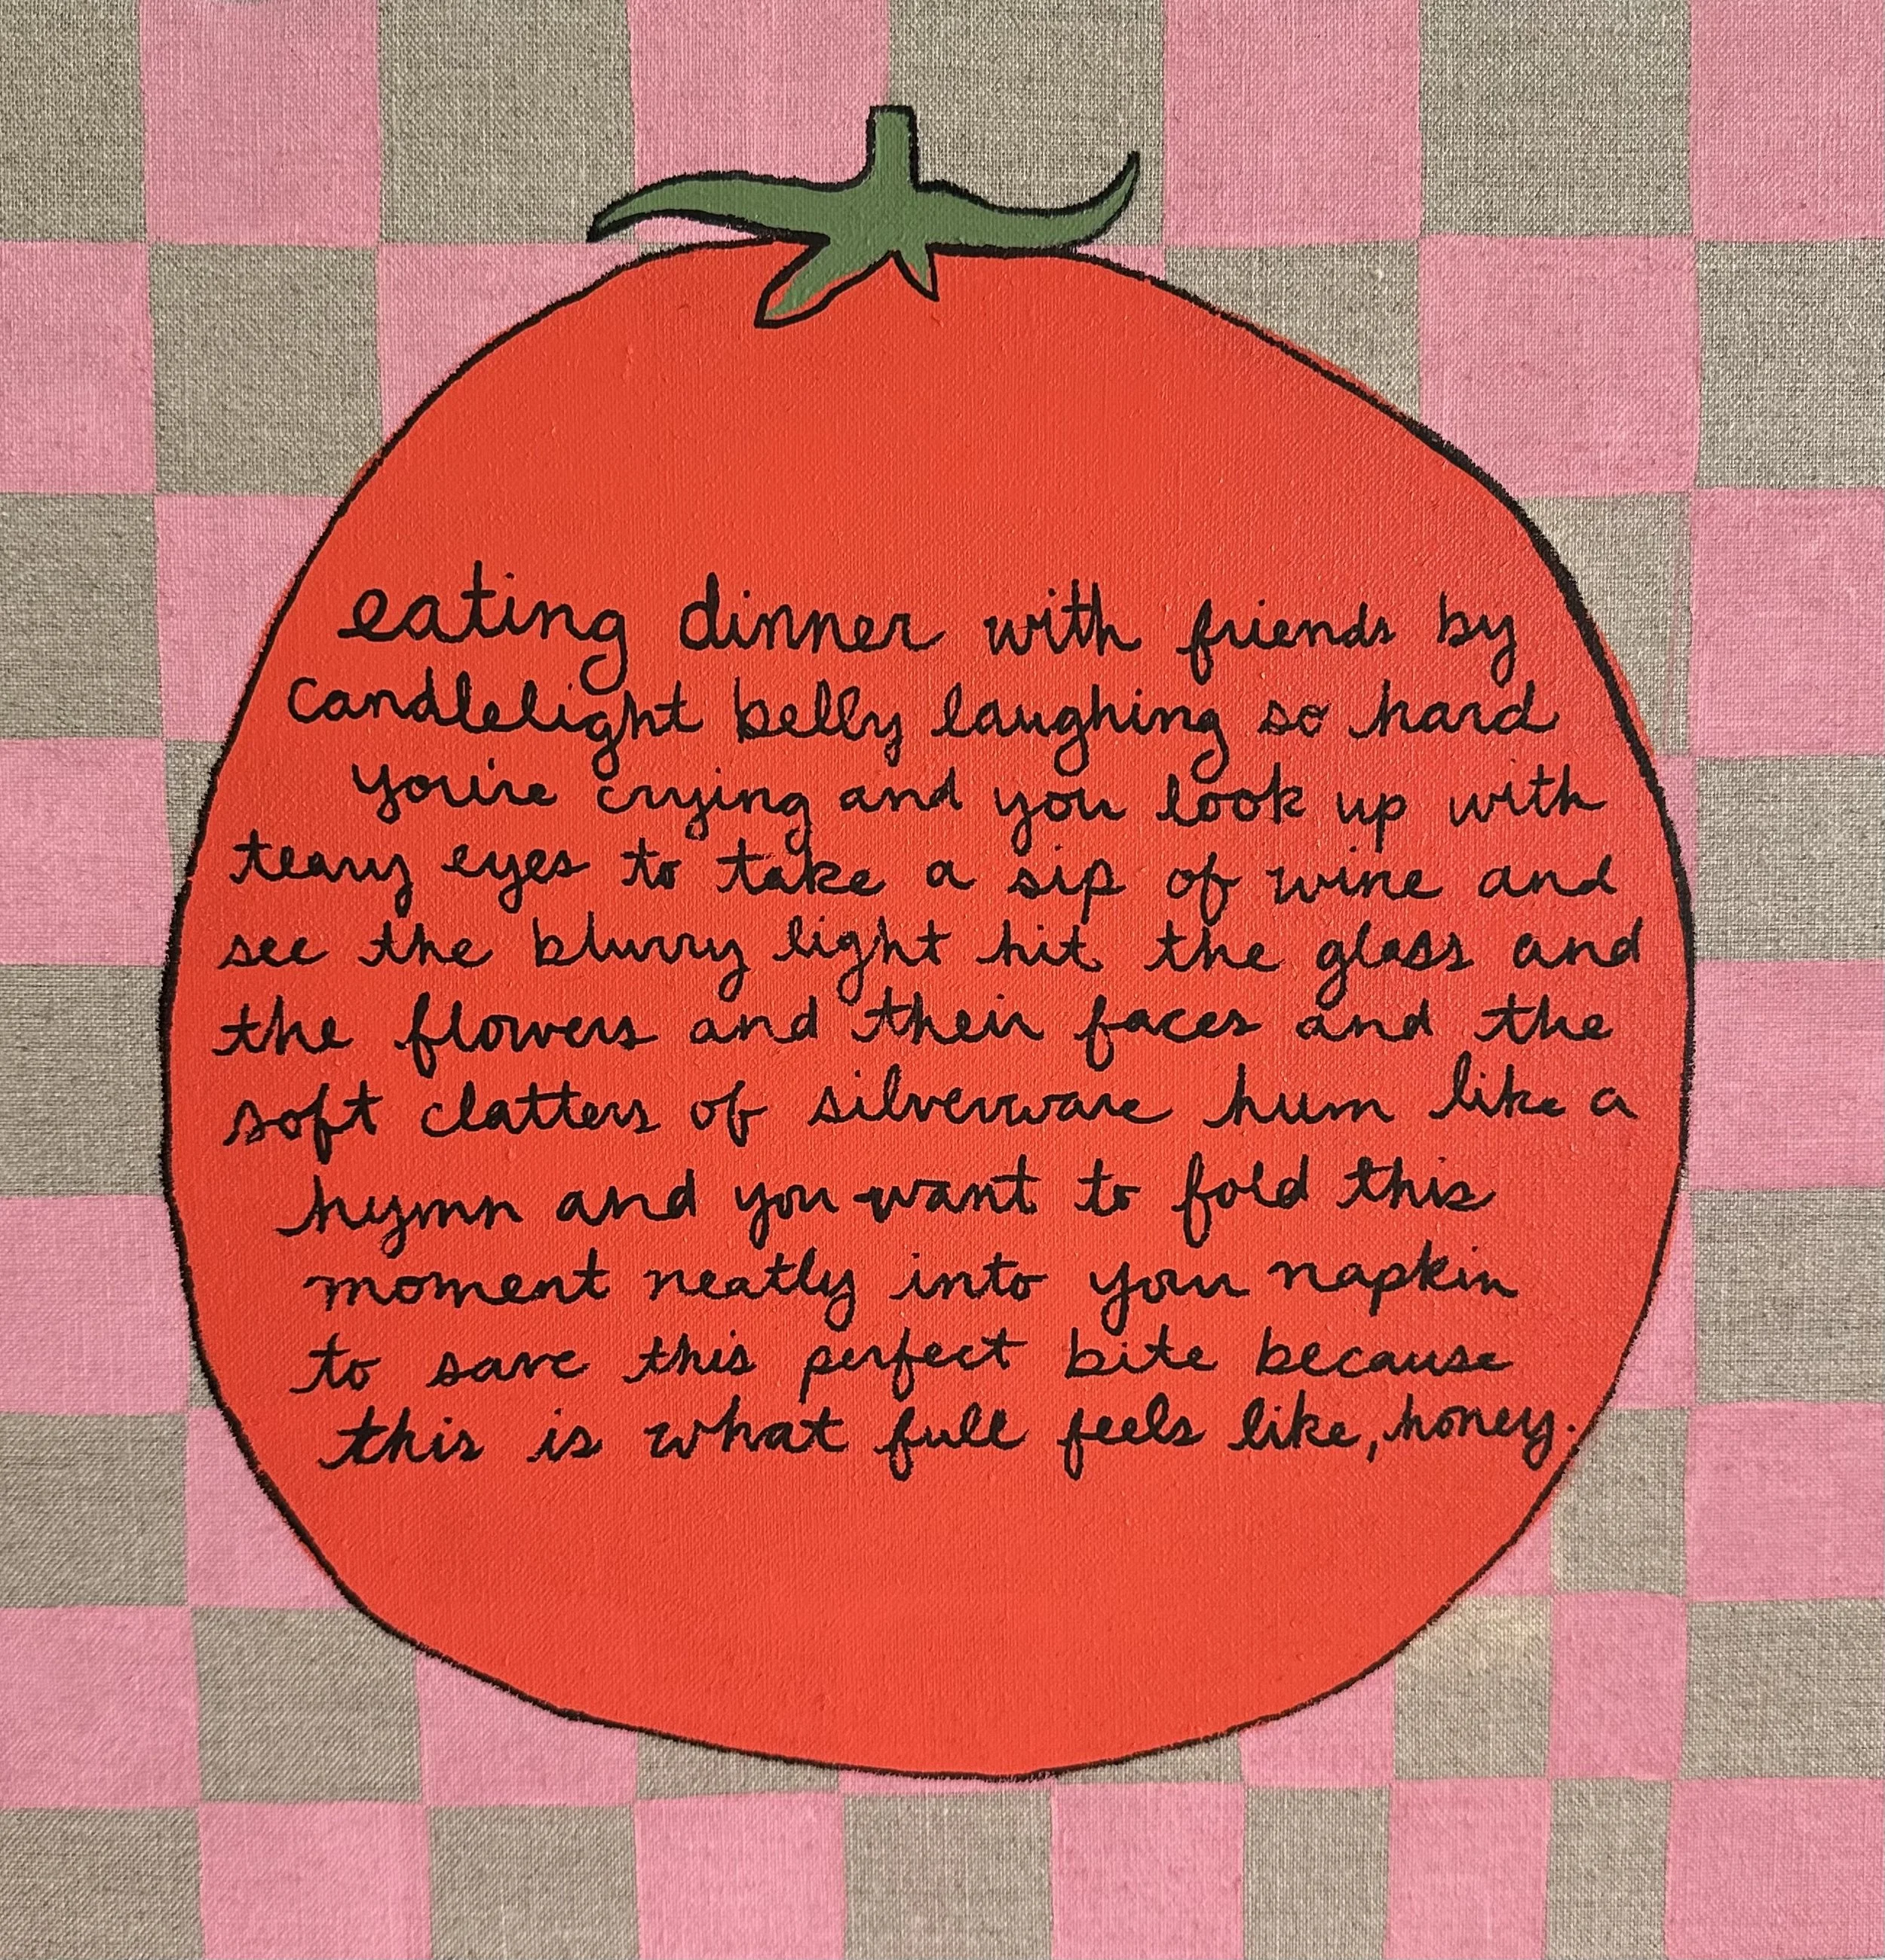 eating dinner with friends by
candlelight belly laughing so hard
you're crying and you look up with
teary eyes to take a sip of wine and
see the blurry light hit the glass and
the flowers and their faces and the
soft clatters of silverware hum like a
hymn and you want to fold this
moment neatly into your napkin
to save this perfect bite because
this is what full feels like, honey.